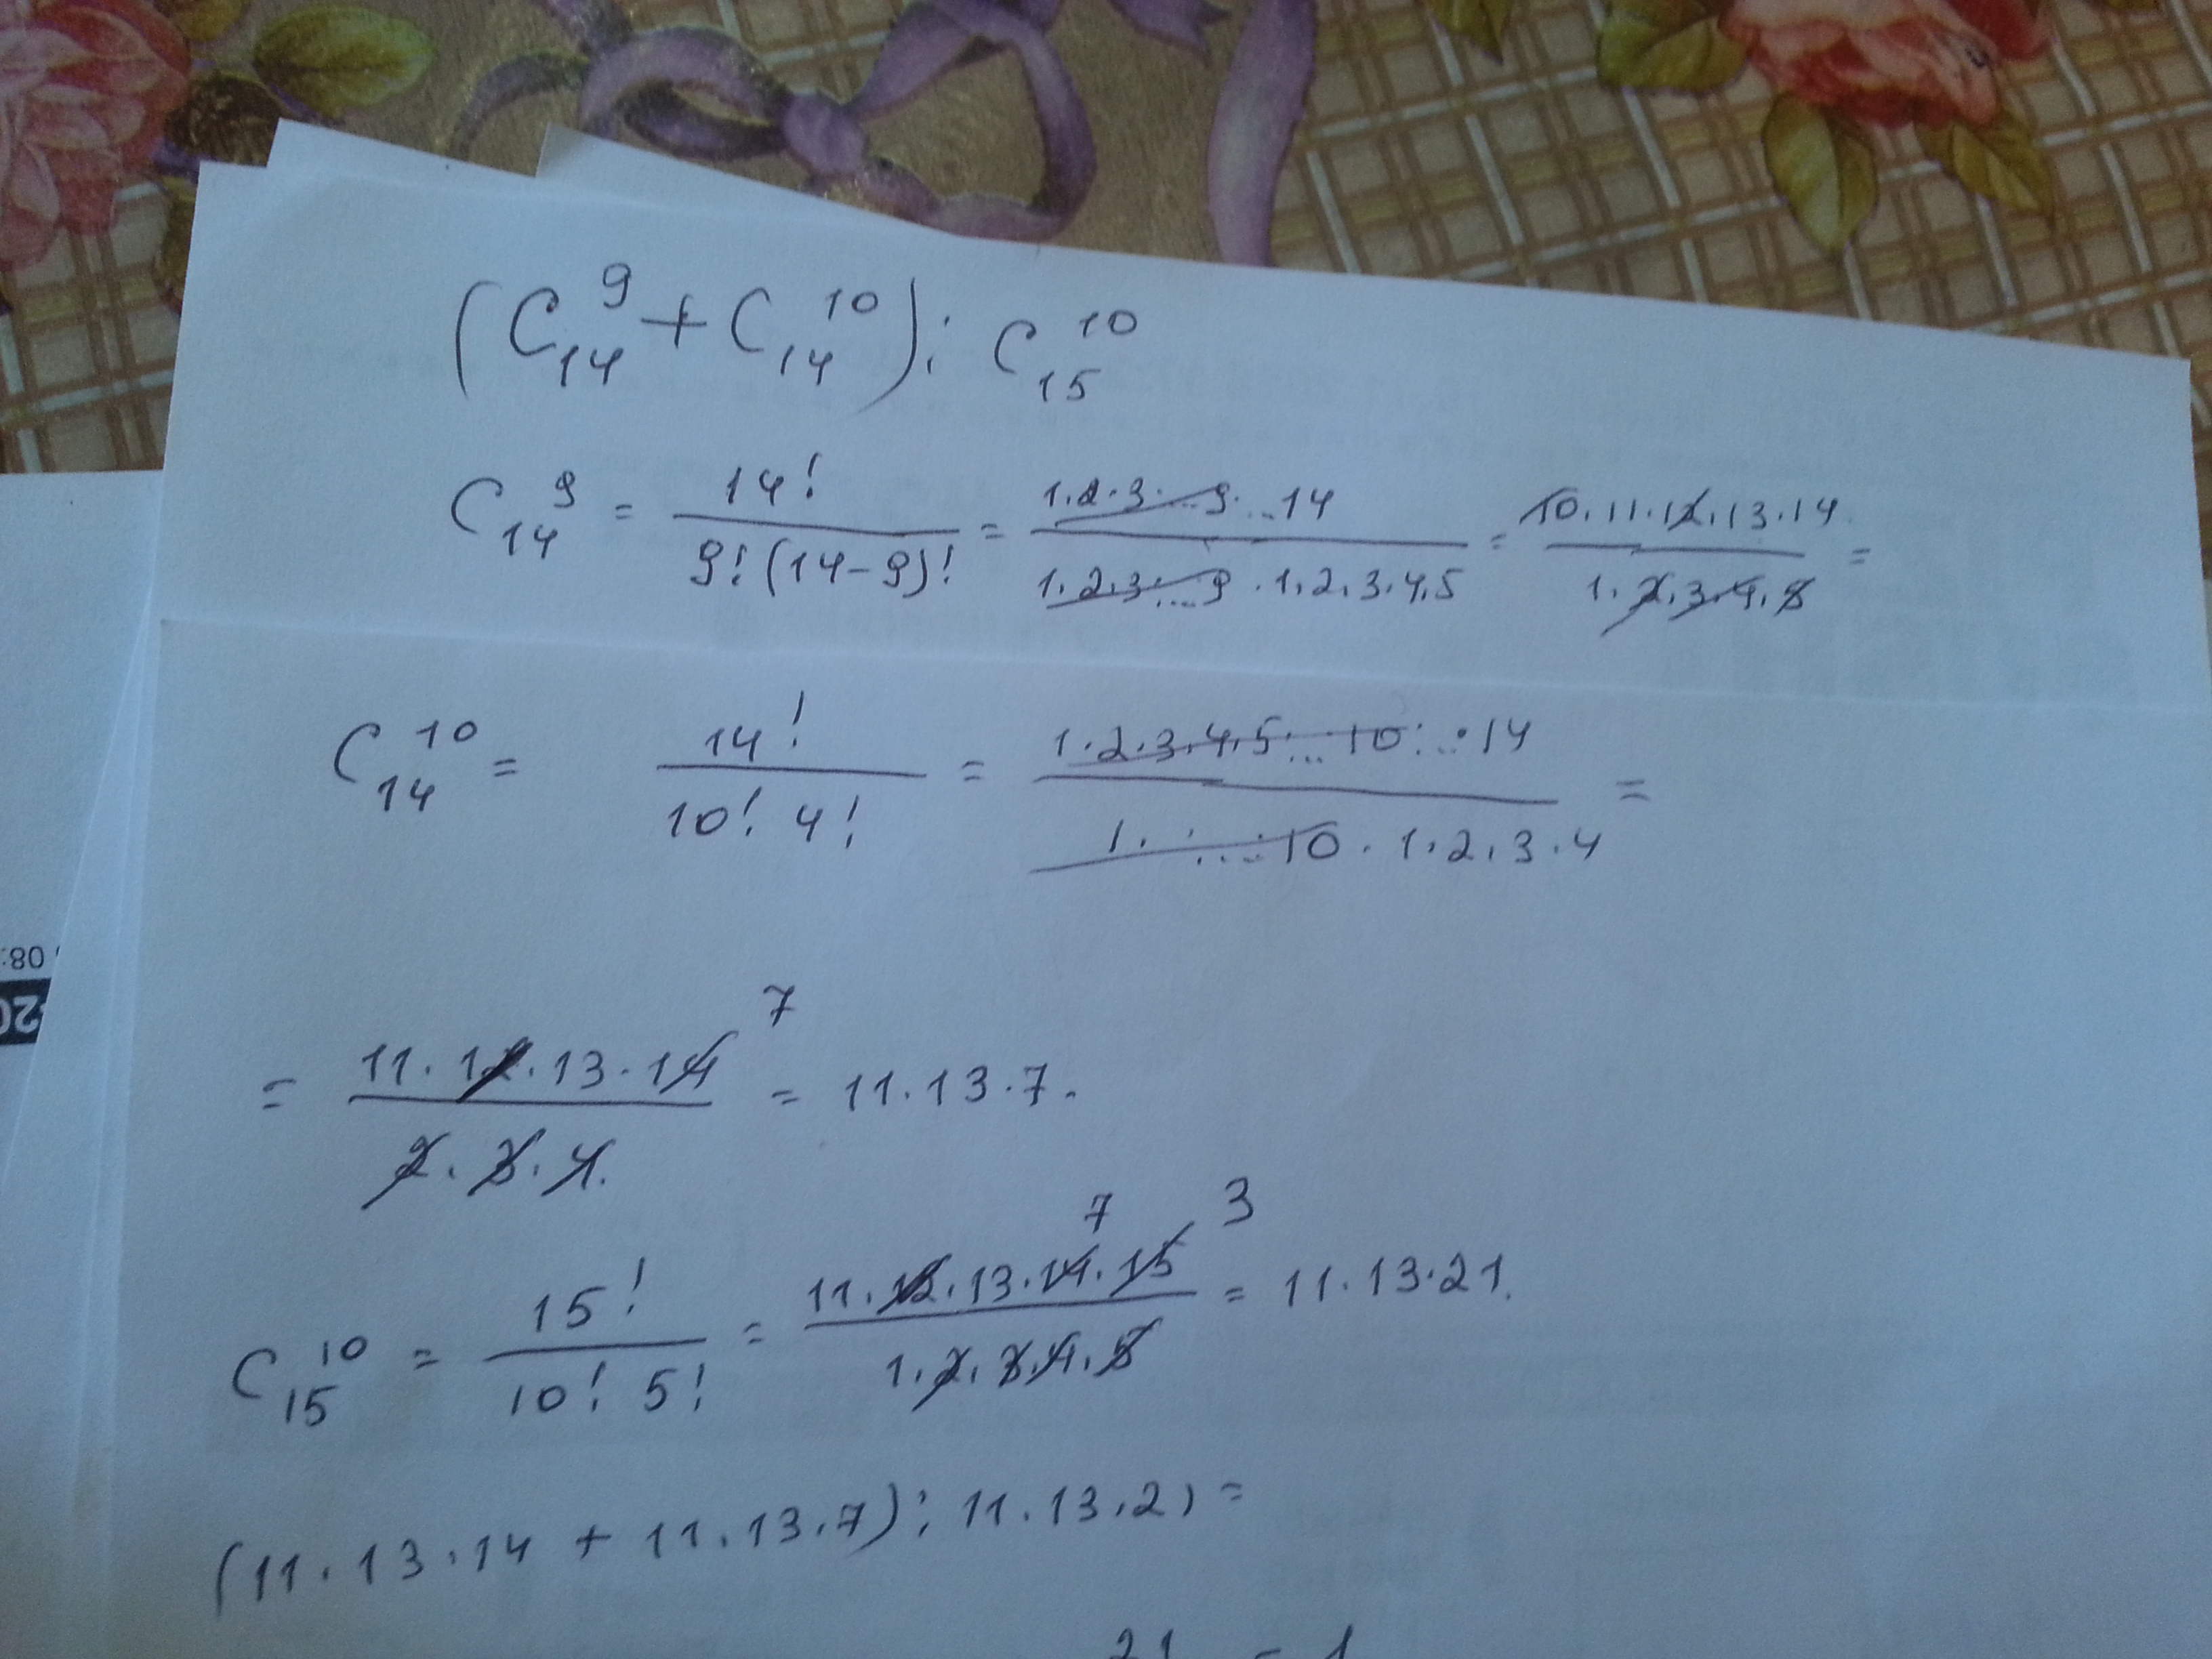 (C₁₄⁹ + C₁₄¹⁰) : C₁₅¹⁰
C₁₄⁹ = 14! / 9!(14-9)! = 1.2.3...9...14 / 1.2.3...9.1.2.3.4.5 = 10.11.12.13.14 / 1.2.3.4.5 =
C₁₄¹⁰ = 14! / 10! 4! = 1.2.3.4.5...10...14 / 1. ...10.1.2.3.4 =
08:
20
7
= 11.12.13.14 / 2.3.4. = 11.13.7.
7 3
C₁₅¹⁰ = 15! / 10! 5! = 11.12.13.14.15 / 1.2.3.4.5 = 11.13.21.
(11.13.14 + 11.13.7) : 11.13.21 =
21 = 1